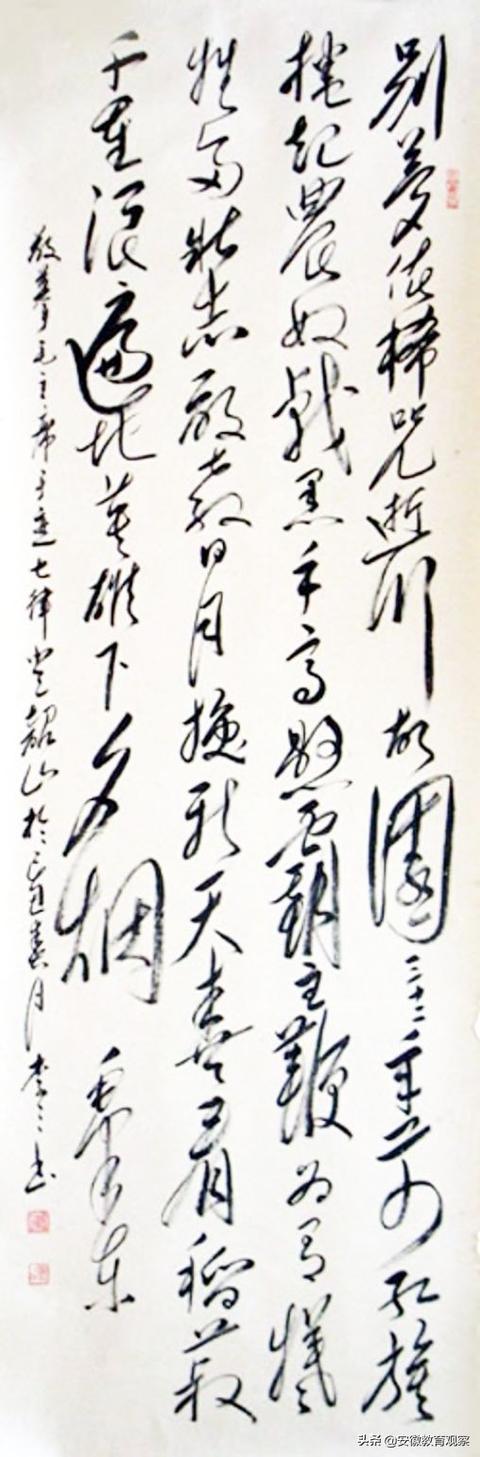 别夢依稀咒逝川故園三十二年前红旗
捲起農奴戟黑手高懸霸主鞭为有犧
牲多壮志敢教日月換新天喜看稻菽
千重浪遍地英雄下夕烟 毛泽东
敬摹毛主席手迹七律登韶山於己丑春月李书
头条 @安徽教育观察